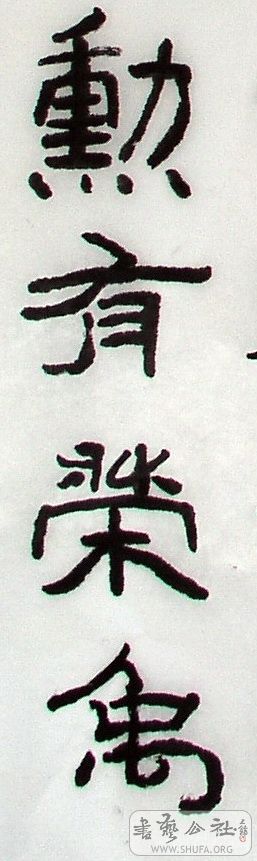 勳有榮禹
書藝公社
WWW.SHUFA.ORG